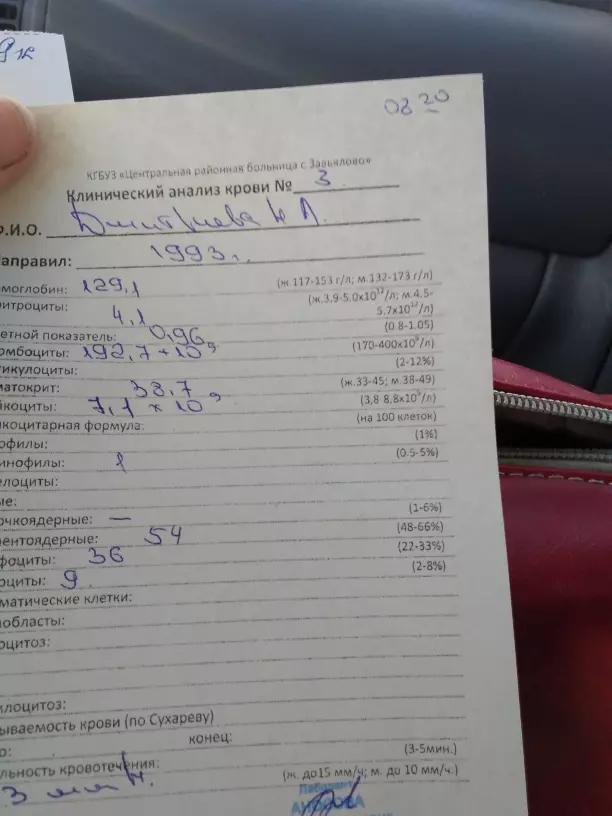 9к
08 20
КГБУЗ «Центральная районная больница с Завьялово»
Клинический анализ крови № 3
Ф.И.О. Дмитриева
аправил: 1993г.
моглобин: 129,1 (ж.117-153 г/л; м.132-173 г/л)
итроциты: 4,1 (ж.3,9-5.0х10¹²/л; м.4.5-
5.7х10¹²/л)
етной показатель: 0,96 (0.8-1.05)
омбоциты: 192,7*10⁹ (170-400х10⁹/л)
тикулоциты: (2-12%)
матокрит: 38,7 (ж.33-45; м.38-49)
йкоциты: 7,1 х 10⁹ (3,8-8,8х10⁹/л)
йкоцитарная формула: (на 100 клеток)
офилы: (1%)
инофилы: 1 (0.5-5%)
елоциты:
ые:
очкоядерные: — (1-6%)
ментоядерные: 54 (48-66%)
фоциты: 36 (22-33%)
оциты: 9. (2-8%)
зматические клетки:
областы:
оцитоз:
илоцитоз:
ываемость крови (по Сухареву)
о: конец: (3-5мин.)
льность кровотечения:
3 мм/ч (ж. до15 мм/ч; м. до 10 мм/ч.)
Лаборант